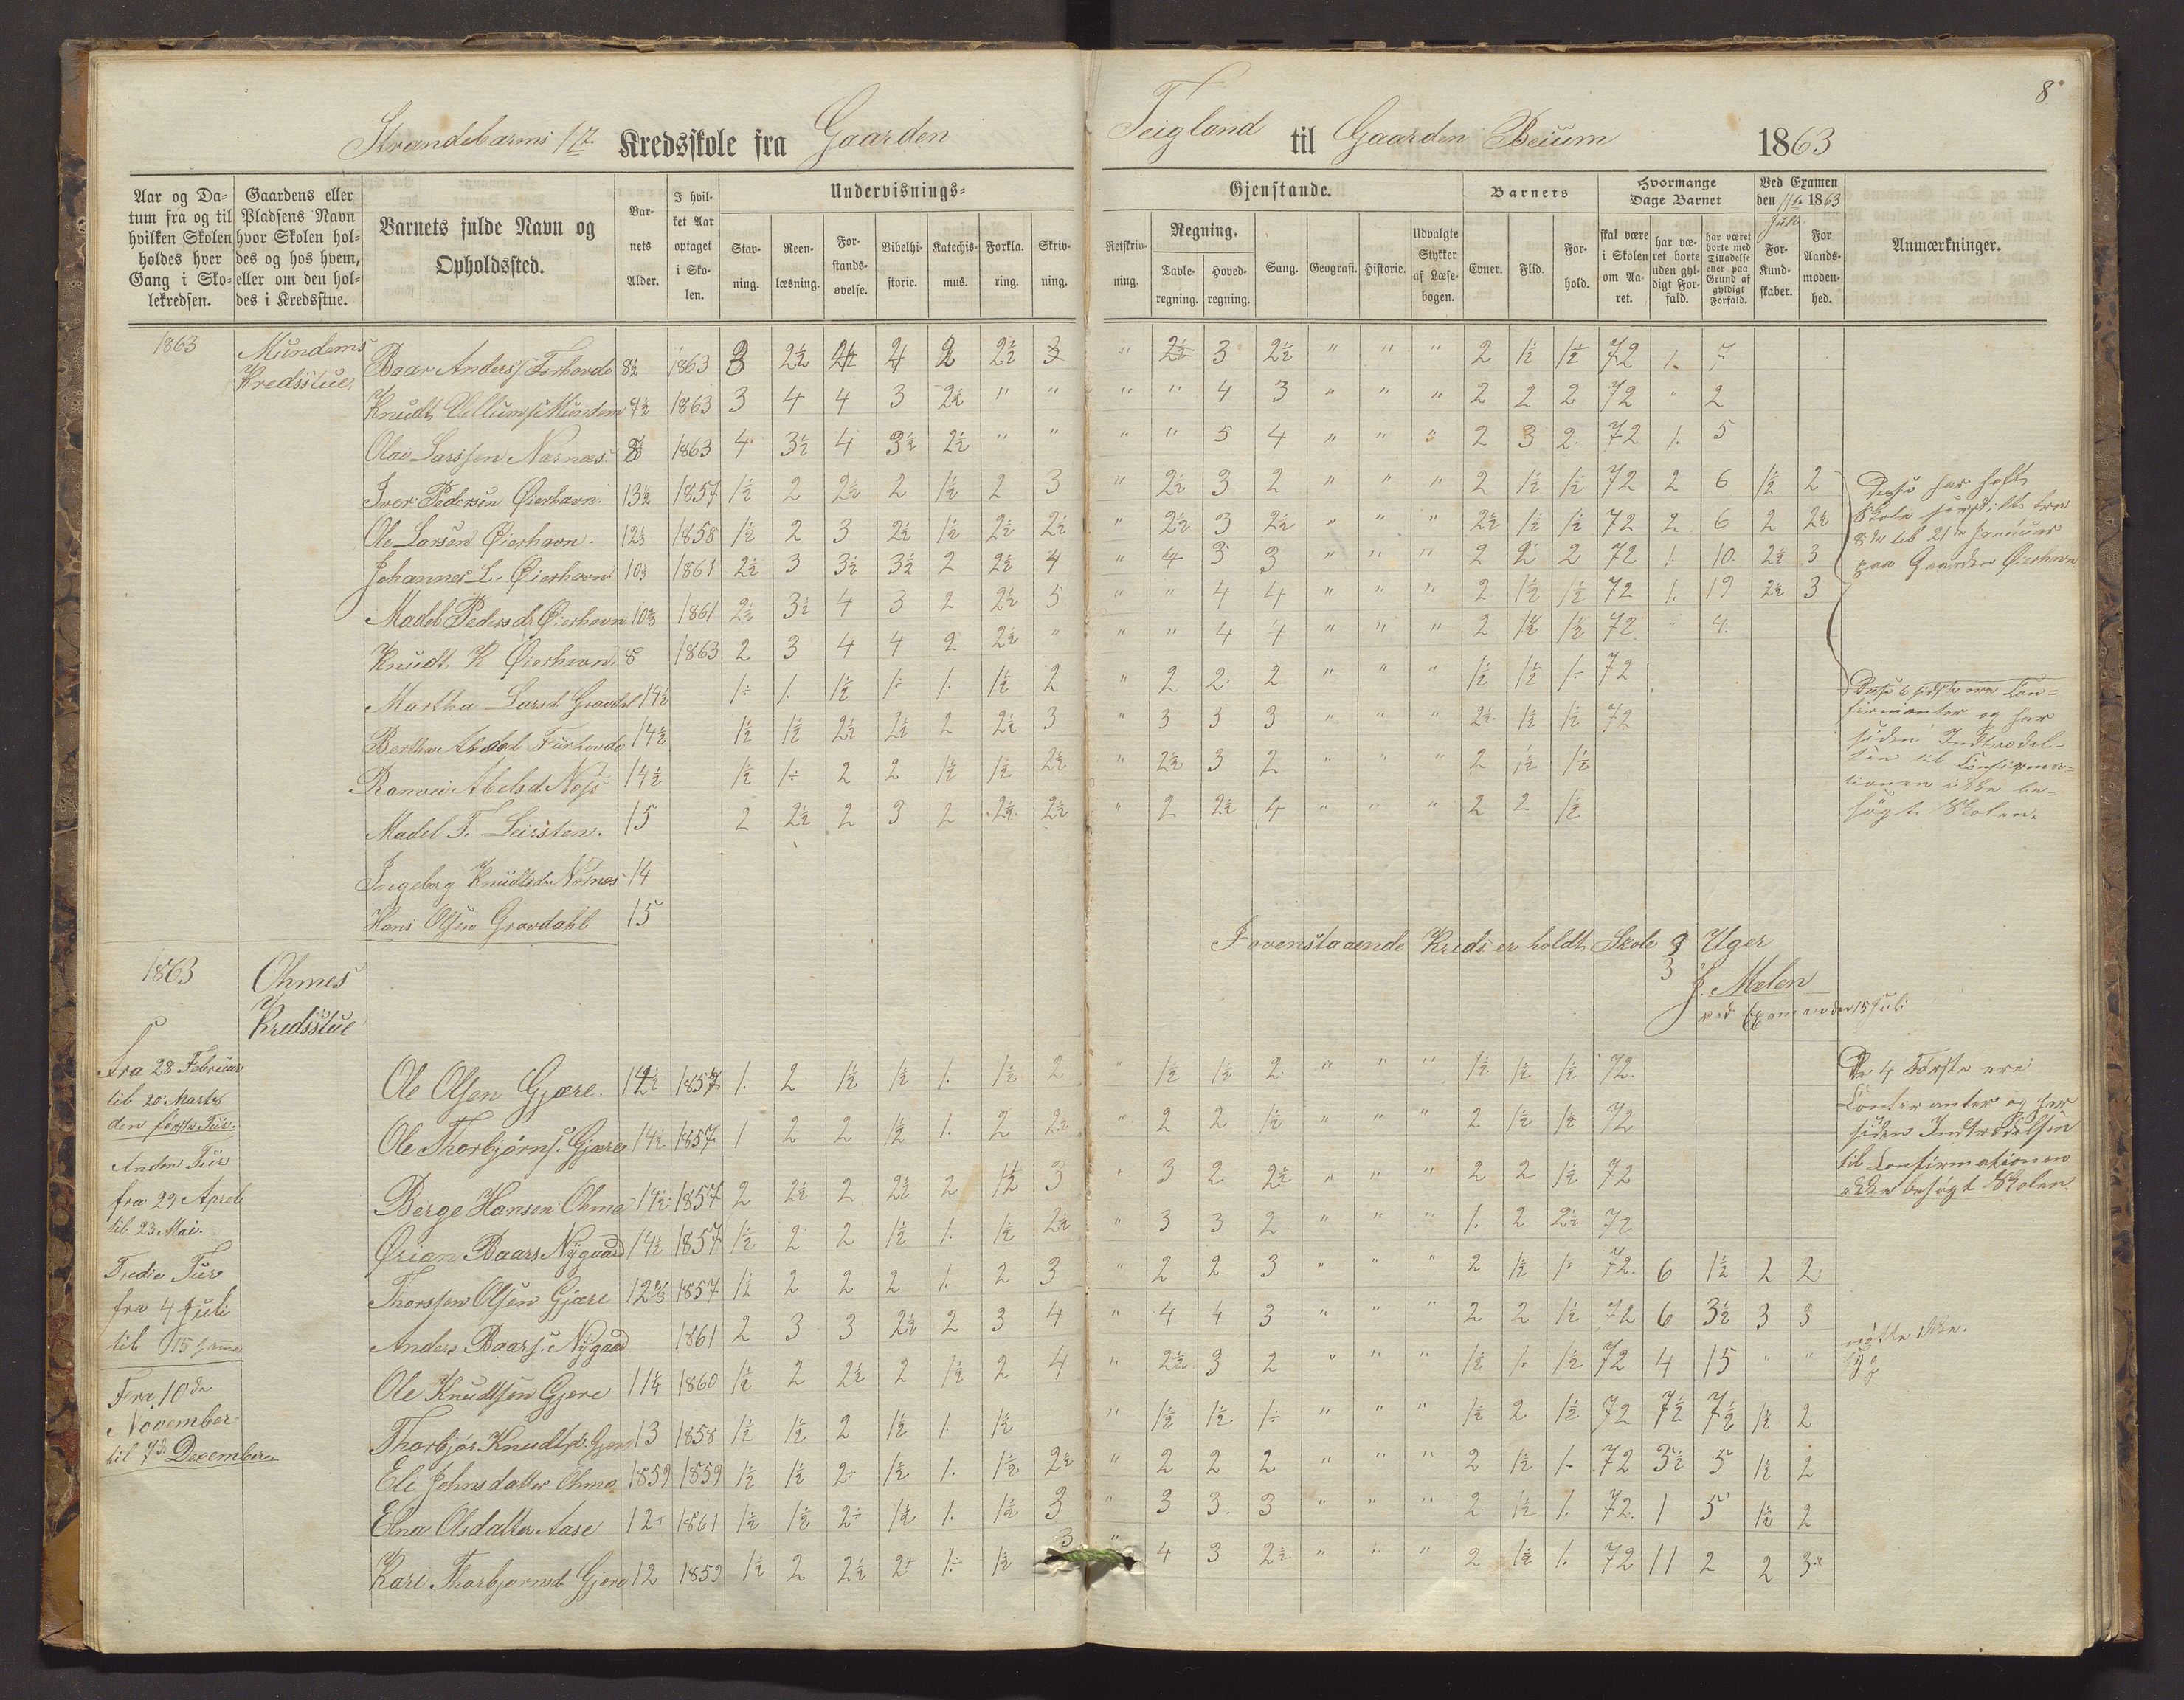 8
Strandebarms 1ste Kredsskole fra Gaarden Teigland til Gaarden Beium 1863
Aar og Da-
tum fra og til
hvilken Skolen
holdes hver
Gang i Sko-
lekredsen.
Gaardens eller
Pladsens Navn
hvor Skolen hol-
des og hos hvem,
eller om den hol-
des i Kredsstue.
Barnets fulde Navn og
Opholdssted.
Bar-
nets
Alder.
I hvil-
ket Aar
optaget
i Sko-
len.
Undervisnings-
Stav-
ning.
Reen-
læsning.
For-
stands-
øvelse.
Bibelhi-
storie.
Katechis-
mus.
Forkla-
ring.
Skriv-
ning.
Gjenstande.
Retskriv-
ning.
Regning.
Tavle-
regning.
Hoved-
regning.
Sang.
Geografi.
Historie.
Udvalgte
Stykker
af Læse-
bogen.
Barnets
Evner.
Flid.
For-
hold.
Hvormange
Dage Barnet
skal være
i Skolen
om Aa-
ret.
har væ-
ret borte
uden gyl-
digt For-
fald.
har været
borte med
Tilladelse
eller paa
Grund af
gyldigt
Forfald.
Ved Examen
den 11te 1863
Juli
For
Kund-
skaber.
For
Aands-
moden-
hed.
Anmærkninger.
1863 Mundems
Kredsstue.
Baar Anders Forhovde 8½ 1863 3 2½ 2 2½ 3 " 3 2½ " " " 2 1½ 1½ 72 1. 7
Knudt Mundem 9½ 1863 3 4 4 3 2½ " " " " 4 3 " " " 2 2 2 72 " 2
Olav Larssen Nærnæs 8 1863 4 3½ 4 3½ 2½ " " " " 5 4 " " " 2 3 2. 72 1. 5
Iver Pedersen Øierhavn. 13½ 1857 1½ 2 2½ 2 1½ 2 3 " 2½ 3 2 " " " 2 1½ 1½ 72 2 6 1½ 2
Ole Larsen Øierhavn. 12½ 1858 1½ 2 3 2½ 1½ 2½ 2½ " 2½ 3 2½ " " " 2½ 1½ 1½ 72 2 6 2 2½
Johannes L. Øierhavn 10½ 1861 2½ 3 3½ 3½ 2 2½ 4 " 4 3 3 " " " 2 2 2 72 1. 10. 2½ 3
Madel Pedersd. Øierhavn 10 1861 2½ 3½ 4 3 2 2½ 5 " " 4 4 " " " 2 1½ 1½ 72 1. 19 2½ 3
Knudt K Øierhavn. 8 1863 2 3 4 4 2 2½ " " " 4 4 " " " 2 1½ 1½ 72 " 4.
Martha Larsd Gravdal 14½ 1÷ 1. 1½ 1÷ 1. 1½ 2 " 2 2 2 " " " 1½ 1½ 1÷ 72
Bertha Furhovde 14½ 1½ 1½ 2½ 2½ 2 2½ 3 " 3 3 3 " " " 2½ 1½ 1½ 72
Ranvei Abelsd Næss 14½ 1½ 1÷ 2 2 1½ 1½ 2½ " 2½ 3 2 " " " 2 1½ 1½
Madel T. Leirsten. 15 2 2½ 2 3 2 2½ 2½ " 2 2½ 4 " " " 2 2 1½
Ingeborg Knudtsd. Nærnes 14
Hans Olsen Gravdahl 15
Disse har holdt
Skole
8de til 21de Januar
paa Gaarden Øierhavn
Disse 6 sidste ere Con-
firmanter og har
siden Indtrædel-
sen til Confirma-
tionen ikke be-
søgt Skolen.
I ovenstaaende Kreds er holdt Skole 9 Uger
3
J. Mælen
ved Examen den 15 Juli
1863 Ohmes
Kredsstue
Fra 28 Februar
til 20 Marts
den første Tur.
Anden Tur
fra 29 April
til 23 Mai.
Tredie Tur
fra 4 Juli
til 15
Fra 10de
November
til 7de December
Ole Olsen Gjære. 14½ 1857 1. 2 1½ 1½ 1. 1½ 2 " 1½ 1½ 2 " " " 1½ 1½ 1½ 72.
Ole Thorbjørns. Gjære 14½ 1857 1 2 2 1½ 1. 2 2½ " 2 2 1½ " " " 2 1½ 1½ 72
Berge Hansen Ohme 14½ 1857 2 2½ 2 2½ 2 1½ 3 " 3 2 2½ " " " 2 2 1½ 72
Ørian Baars Nygaard 14½ 1857 1½ 2 2 1½ 1. 1½ 2½ " 3 3 2 " " " 1. 2 2½ 72
Thorssen Olsen Gjære 12⅔ 1857 1½ 2 2 2 1. 2 3 " 2 2 3 " " " 2 1½ 1÷ 72. 6 1½ 2 2
Anders Baars. Nygaard 1861 2 3 3 2½ 2 3 4 " 4 4 3 " " " 2 2 1½ 72 6 3½ 3 3
Ole Knudtsen Gjere 11¼ 1860 1½ 2 2½ 2 1½ 2 4 " 2½ 3 2 " " " 1½ 1. 1½ 72 4 15 " "
Thorbjør Knudtsd. Gjere 13 1858 1½ 1½ 2 1½ 1. 1½ " 1½ 1½ 1÷ " " " 1½ 2 1½ 72 7½ 7½ 1½ 2
Eli Johnsdatter Ohme 1859 1859 1½ 1½ 2÷ 1½ 1. 1½ 2½ " 2 2 2 " " " 2 1½ 1. 72 3½ 5 1½ 2
Elna Olsdatter Aase 12÷ 1861 1½ 1½ 2÷ 1½ 1. 1½ 3 " 3 3. 3 " " " 2 1½ 1. 72. 1 5 1½ 2
Kari Thorbjørnsd. Gjere 12 1859 1½ 2 2½ 2÷ 1÷ 1½ 3 " 4 3 2½ " " " 2 1½ 1. 72 11 2 2 3
De 4 Første ere
og har
siden Indtrædelsen
til Confirmationen
ikke besøgt Skolen.